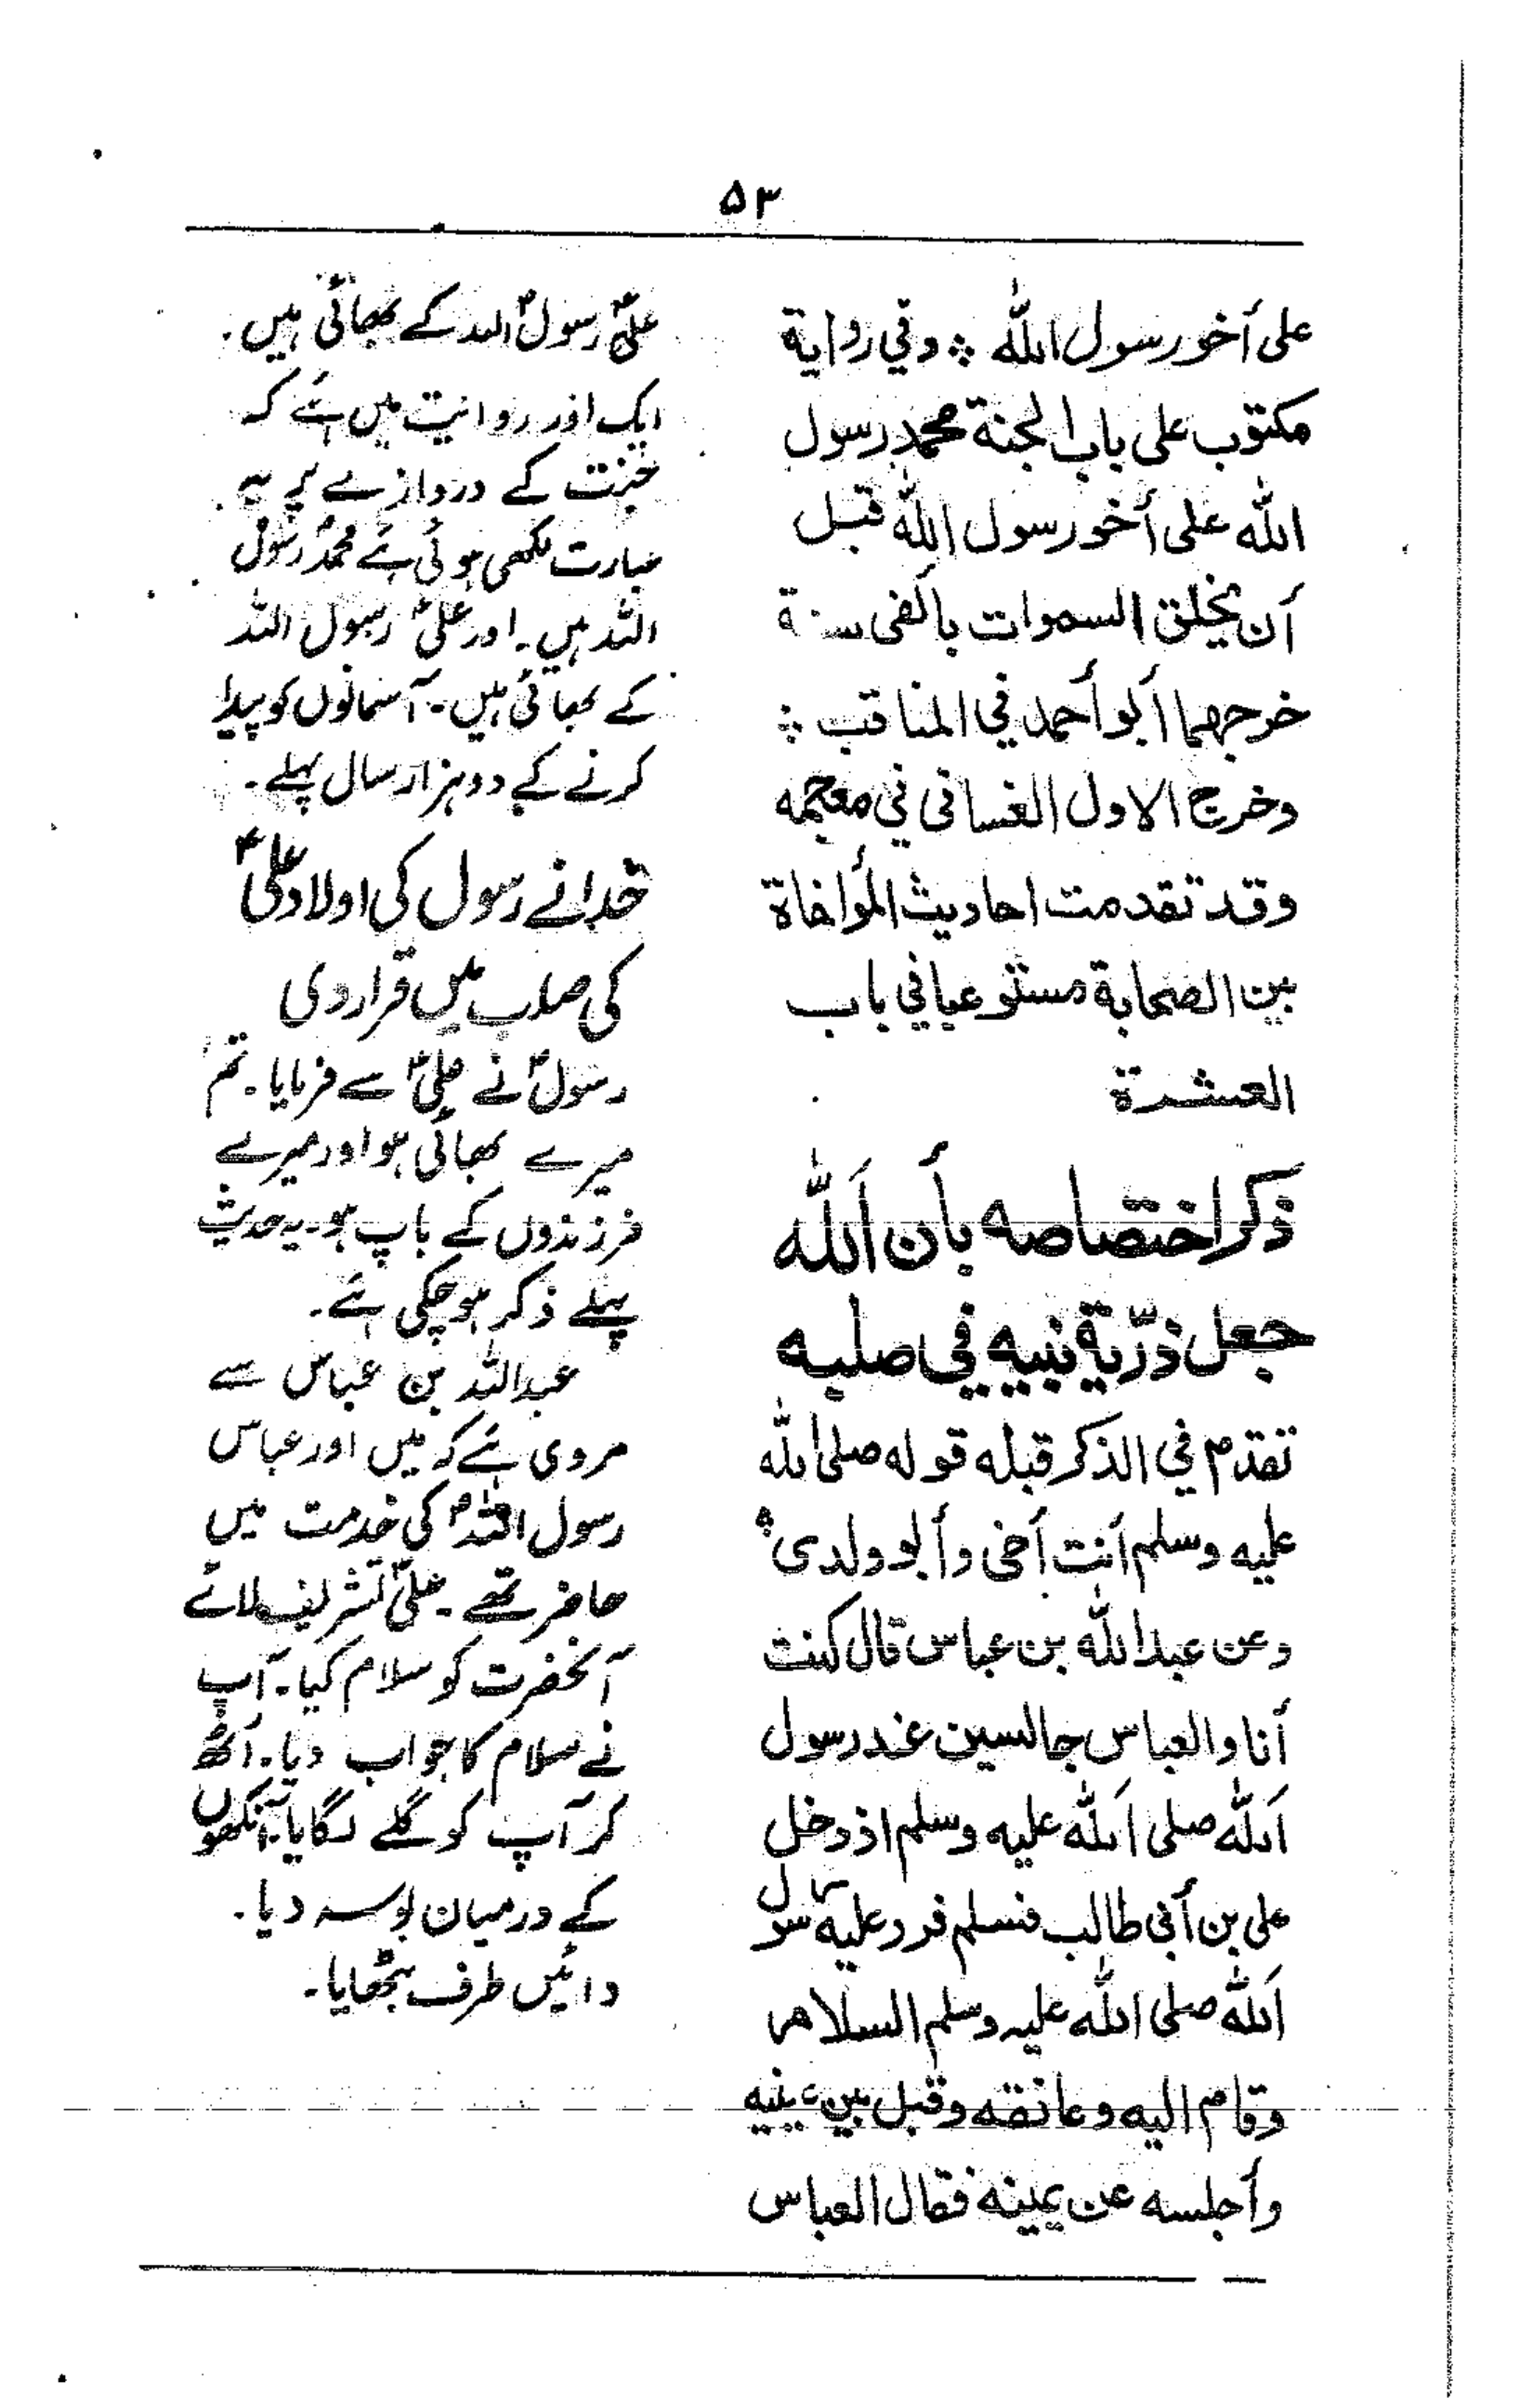 ۵۳
على أخو رسول الله ⁘ وفي رواية
مكتوب على باب الجنة محمد رسول
الله على أخو رسول الله قبل
أن يخلق السموات بألفى سنة
خرجهما أبو أحمد في المناقب ⁘
وخرج الاول الغسانى في معجمه
وقد تقدمت احاديث المؤاخاة
بين الصحابة مستوعبا في باب
العشرة
ذكر اختصاصه بأن الله
جعل ذرّية نبيه في صلبه
تقدم في الذكر قبله قوله صلى الله
عليه وسلم أنت أخى وأبو ولدى
وعن عبد الله بن عباس قال كنت
أنا والعباس جالسين عند رسول
الله صلى الله عليه وسلم اذ دخل
على بن أبى طالب فسلم فرد عليه رسول
الله صلى الله عليه وسلم السلام
وقام اليه وعانقه وقبل بين عينيه
وأجلسه عن يمينه فقال العباس
علیؑ رسولؐ اللہ کے بھائی ہیں۔
ایک اور روایت میں ہے کہ
جنت کے دروازے پر یہ
عبارت لکھی ہوئی ہے محمدؐ رسول
اللہ ہیں۔ اور علیؑ رسول اللہ
کے بھائی ہیں۔ آسمانوں کو پیدا
کرنے کے دو ہزار سال پہلے۔
خدا نے رسول کی اولاد علیؑ
کی صلب میں قرار دی
رسولؐ نے علیؑ سے فرمایا۔ تم
میرے بھائی ہو اور میرے
فرزندوں کے باپ ہو۔ یہ حدیث
پہلے ذکر ہو چکی ہے۔
عبداللہ بن عباس سے
مروی ہے کہ میں اور عباس
رسول اللہؐ کی خدمت میں
حاضر تھے۔ علیؑ تشریف لائے
آنحضرت کو سلام کیا۔ آپ
نے سلام کا جواب دیا۔ اُٹھ
کر آپ کو گلے لگایا۔ آنکھوں
کے درمیان بوسہ دیا۔
دائیں طرف بٹھایا۔